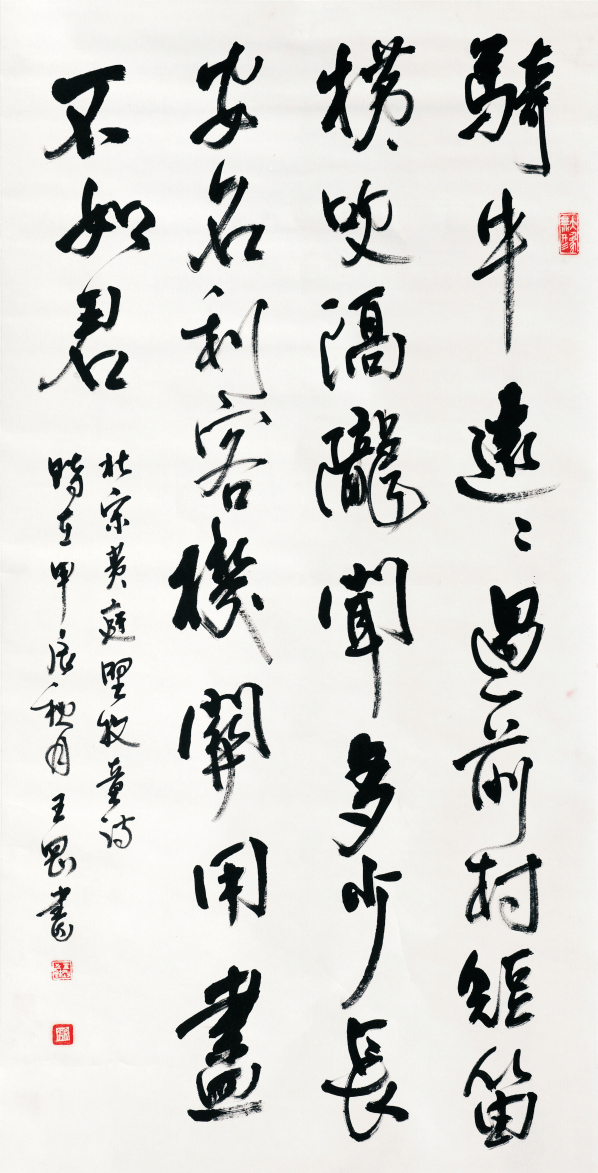 騎牛遠々過前村短笛
橫吹隔隴聞多少長
安名利客機關用盡
不如君
北宋黃庭堅牧童詩
時在甲辰秋月王書
大象無形